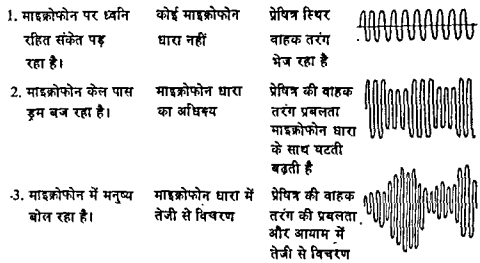 1. माइक्रोफोन पर ध्वनि रहित संकेत पड़ रहा है।
कोई माइक्रोफोन धारा नहीं
प्रेषित्र स्थिर वाहक तरंग भेज रहा है
2. माइक्रोफोन केल पास ड्रम बज रहा है।
माइक्रोफोन धारा का अधिश्य
प्रेषित्र की वाहक तरंग प्रबलता माइक्रोफोन धारा के साथ घटती बढ़ती है
3. माइक्रोफोन में मनुष्य बोल रहा है।
माइक्रोफोन धारा में तेजी से विचरण
प्रेषित्र की वाहक तरंग की प्रबलता और आयाम में तेजी से विचरण